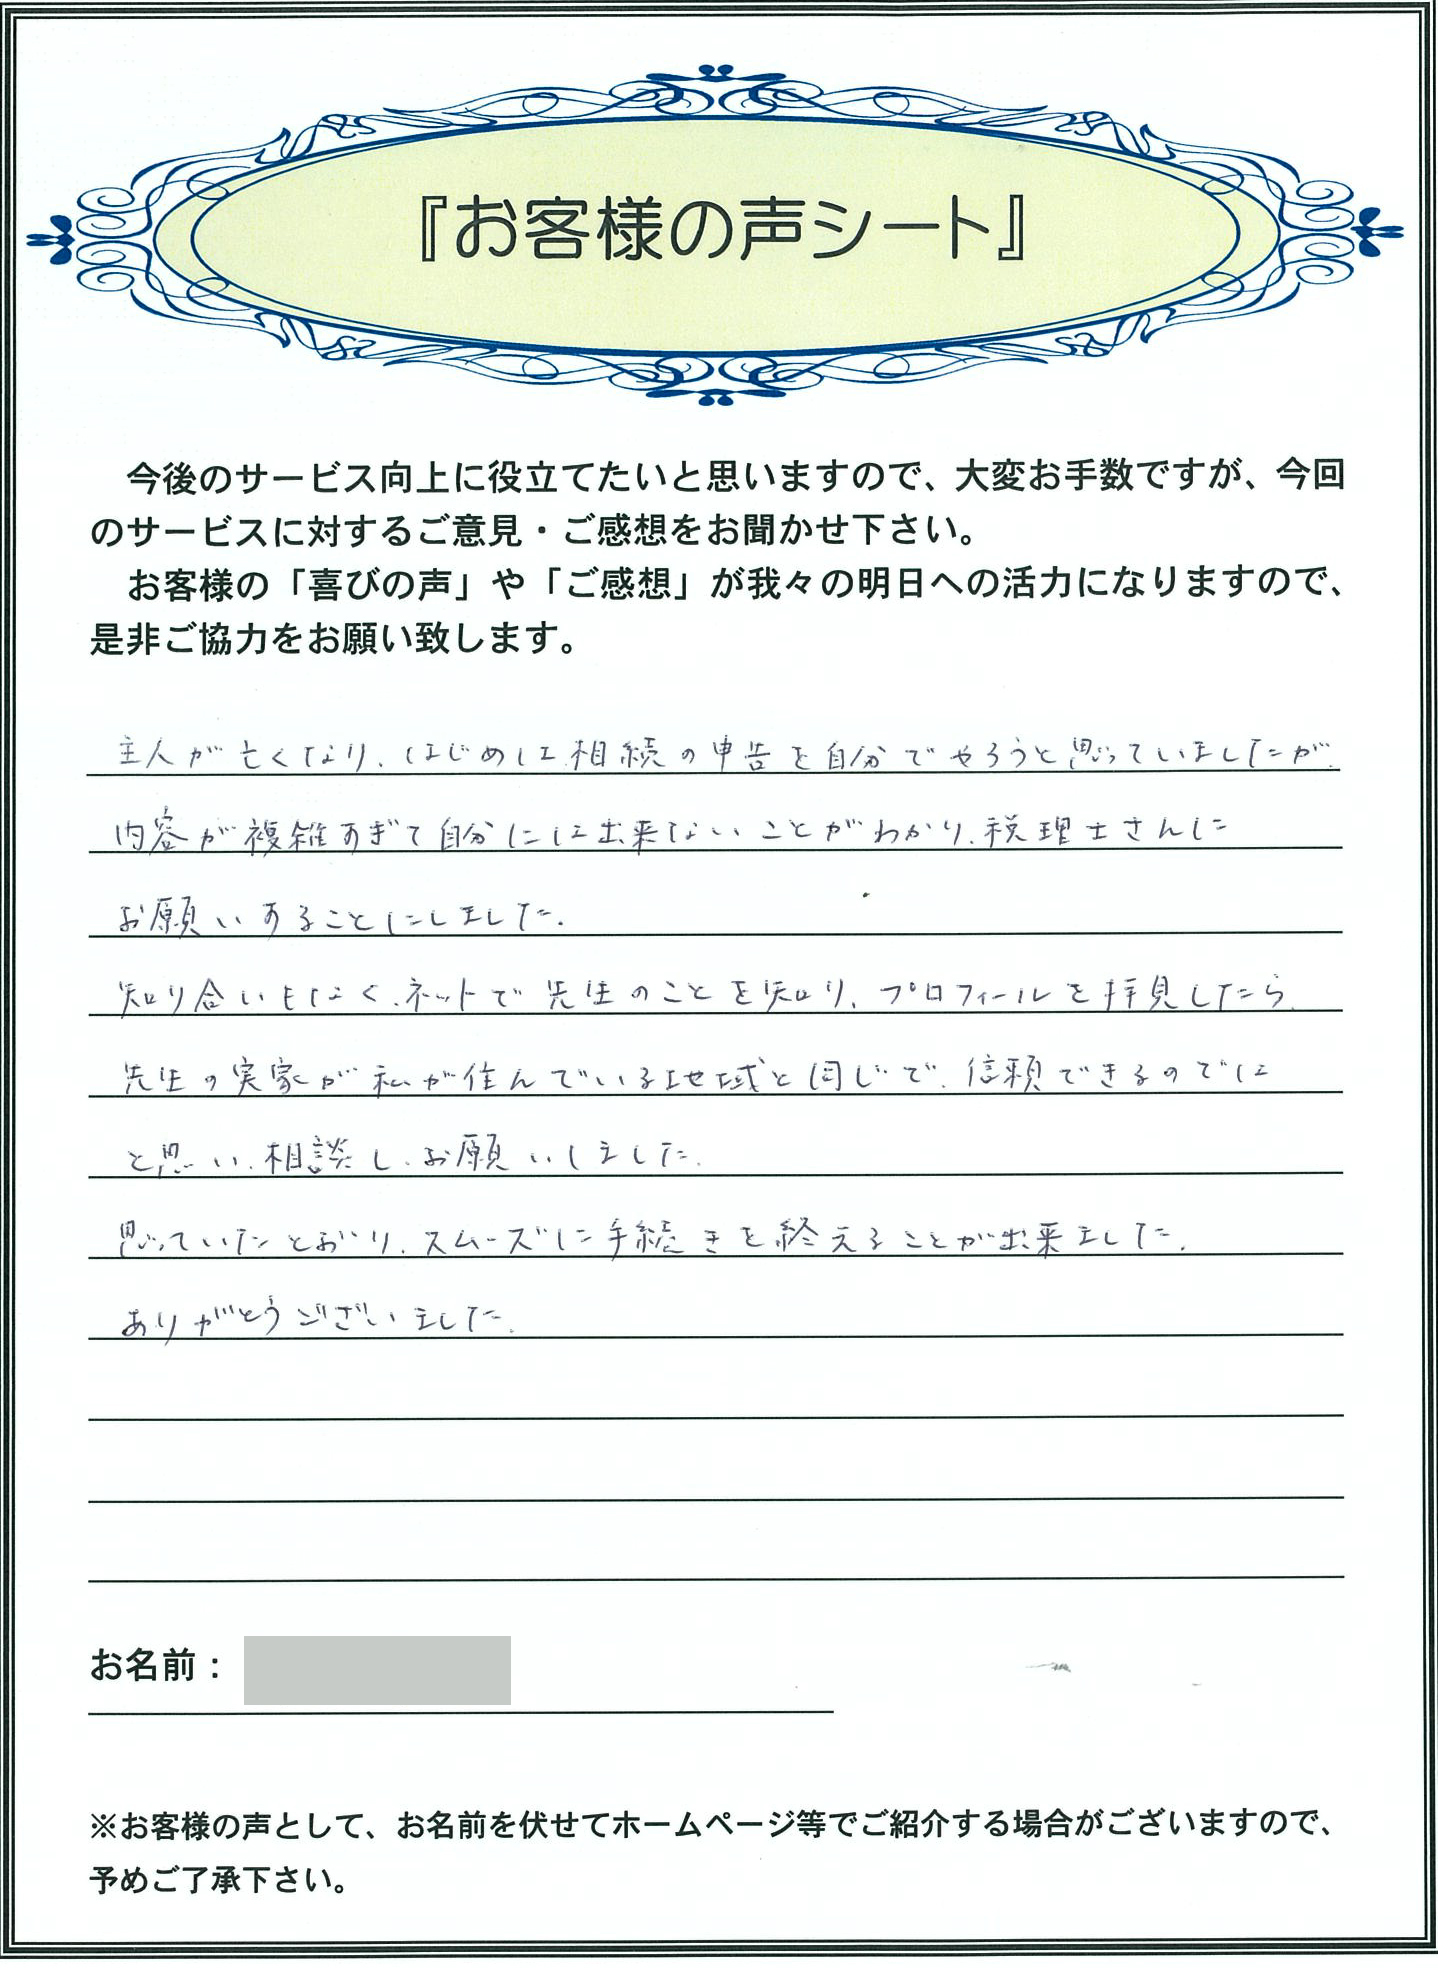 『お客様の声シート』
今後のサービス向上に役立てたいと思いますので、大変お手数ですが、今回
のサービスに対するご意見・ご感想をお聞かせ下さい。
お客様の「喜びの声」や「ご感想」が我々の明日への活力になりますので、
是非ご協力をお願い致します。
主人が亡くなり、はじめは相続の申告を自分でやろうと思っていましたが、
内容が複雑すぎて自分には出来ないことがわかり、税理士さんに
お願いすることにしました。
知り合いもなく、ネットで先生のことを知り、プロフィールを拝見したら、
先生の実家が私が住んでいる地域と同じで、信頼できるのでは
と思い、相談し、お願いしました。
思っていたとおり、スムーズに手続きを終えることが出来ました。
ありがとうございました。
お名前：
※お客様の声として、お名前を伏せてホームページ等でご紹介する場合がございますので、
予めご了承下さい。